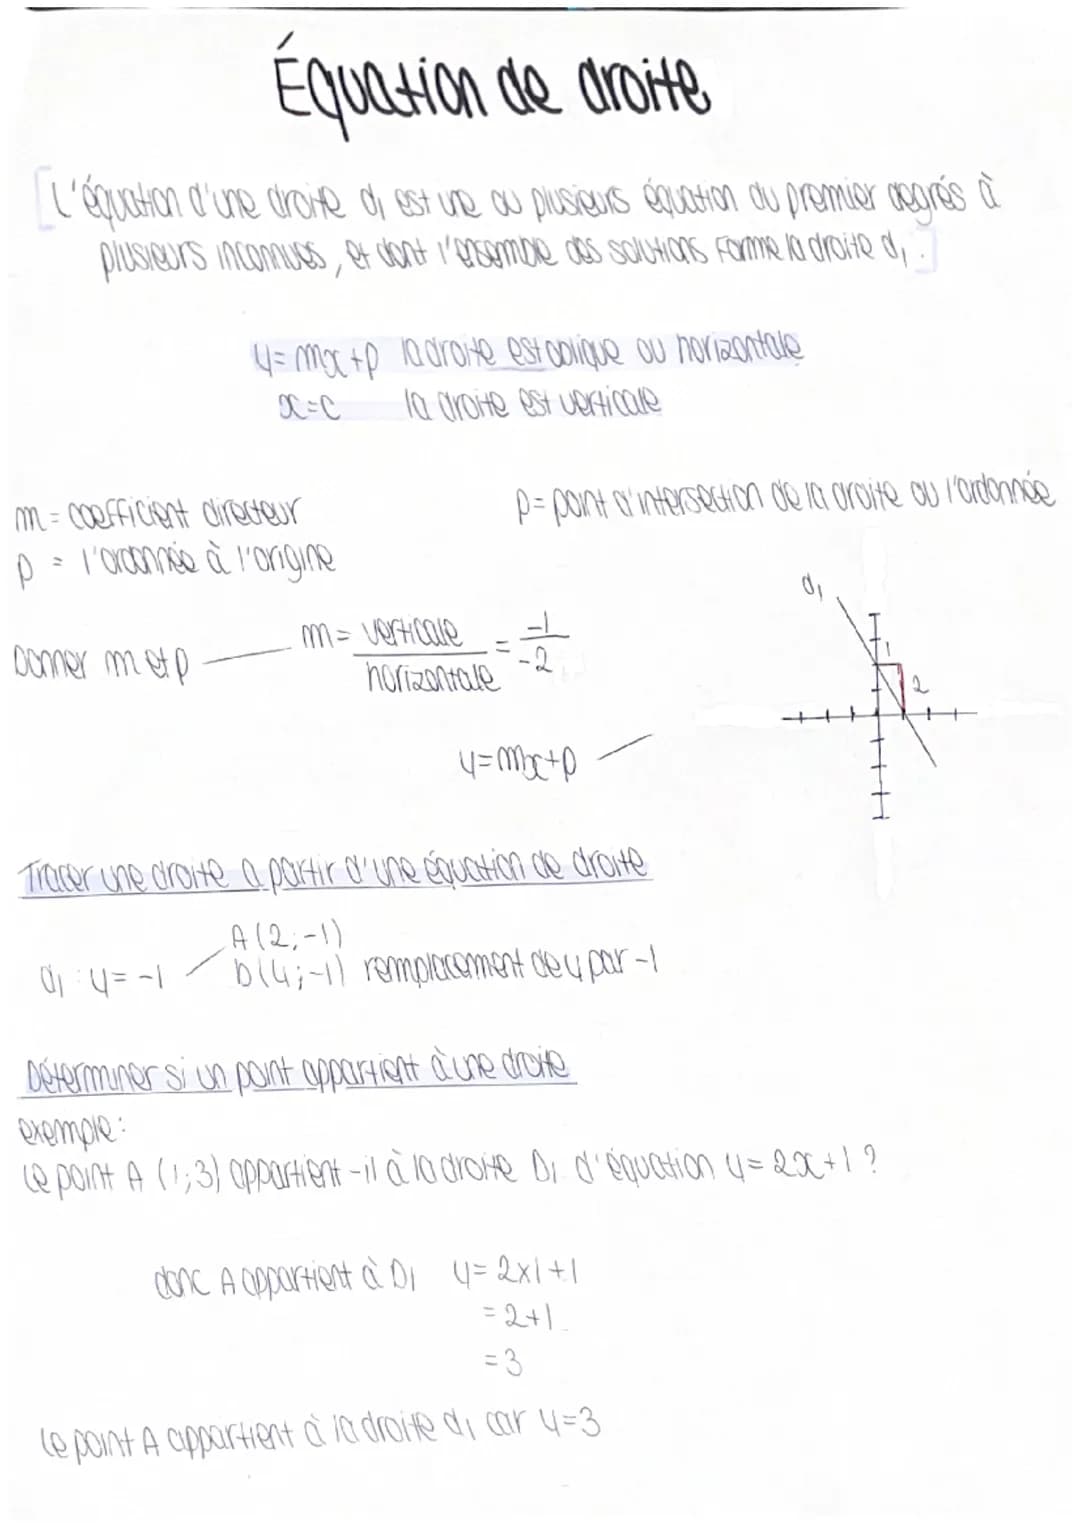 Équation de droite
[L'équation d'une droite d₁ est une ou plusieurs équation du premier degrés à
plusieurs inconnues, et dont l'ensemble des solutions forme la droite d₁.]
y=mx+p la droite est oblique ou horizontale
x=c la droite est verticale
m = coefficient directeur
p = l'ordonnée à l'origine
p= point d'intersection de la droite ou l'ordonnée
Donner m et p
m= verticale / horizontale = -1 / -2
d₁
1
2
y=mx+p
Tracer une droite a partir d'une équation de droite
A(2;-1)
d₁ : y=-1 b(4;-1) remplacement de y par -1
Déterminer si un point appartient à une droite
exemple:
Le point A (1;3) appartient-il à la droite D₁ d'équation y= 2x+1 ?
donc A appartient à D₁ y= 2x1+1
= 2+1
= 3
Le point A appartient à la droite d₁ car y=3